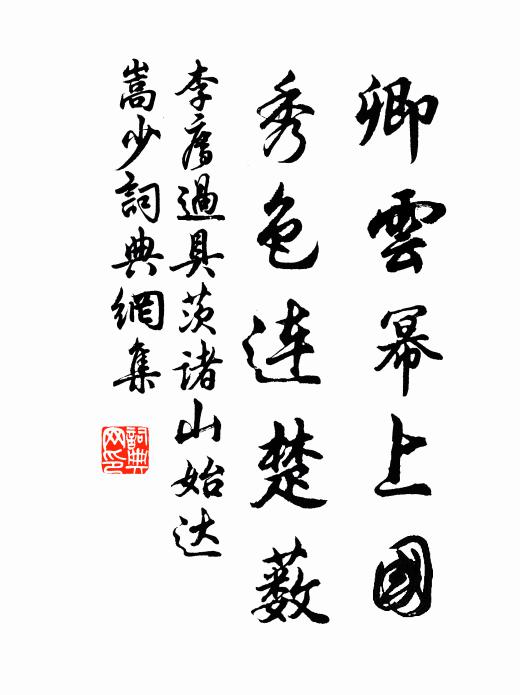 卿雲冪上國
秀色連楚藪
李廌過具茨諸山始达
嵩少詞典網集
詞典
网印